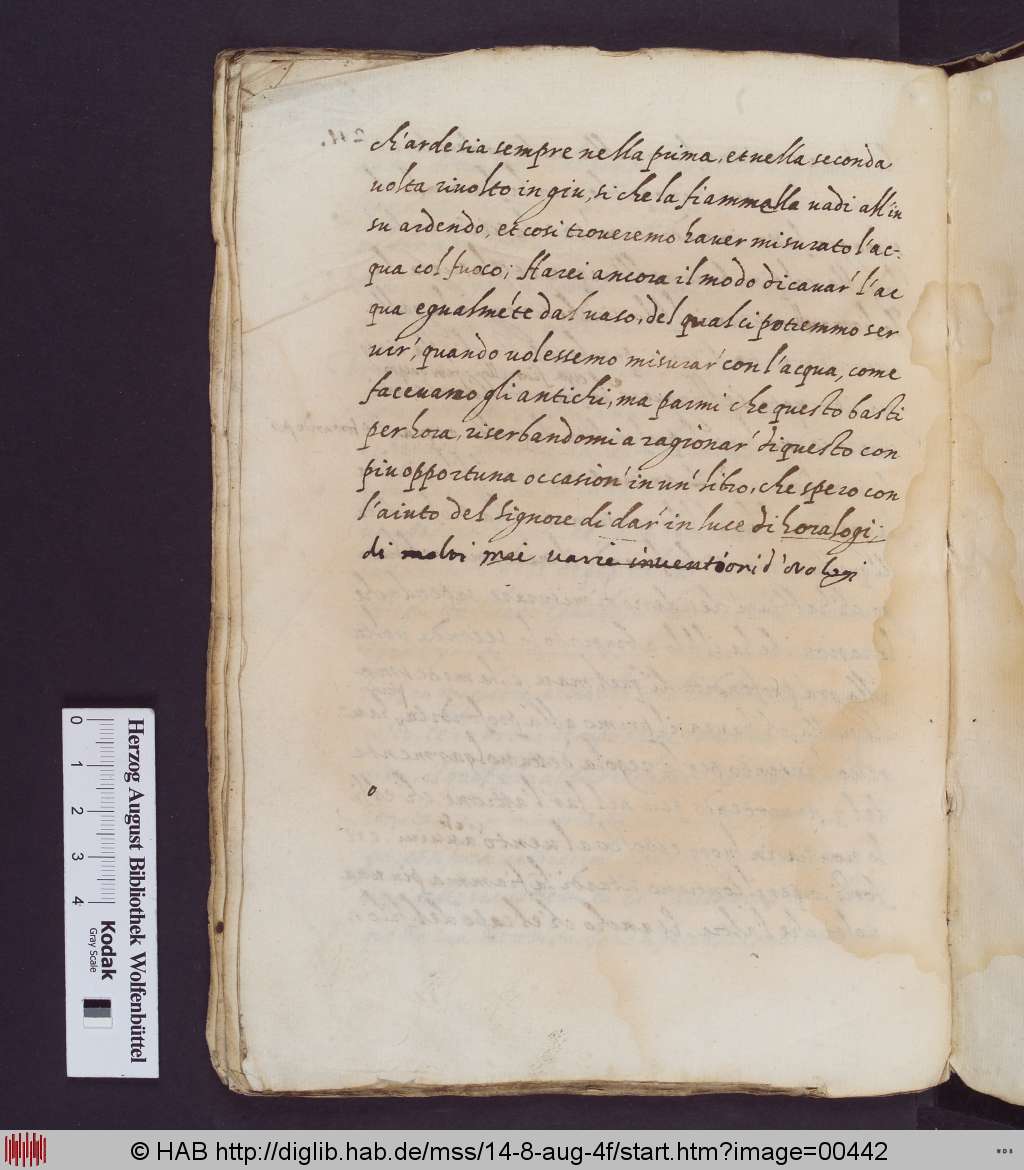 ch'arde sia sempre nella prima, et nella seconda
uolta riuolto in giu, si che la fiammella uadi all'in
su ardendo, et cosi troueremo hauer misurato l'ac-
qua col fuoco; Harei ancora il modo di cauar' l'ac
qua egualmẽte dal uaso, del qual ci potremmo ser
uir', quando uolessemo misurar' con l'acqua, come
faceuamo gli antichi, ma parmi che questo basti
per hora, riserbandomi a ragionar' di questo con
piu opportuna occasion' in un' libro, che spero con
l'aiuto del signore di dar' in luce di horalogi;
di molti mai uarie inuentiori d'orologi
211.
0 1 2 3 4
Herzog August Bibliothek Wolfenbüttel
Kodak
Gray Scale
© HAB http://diglib.hab.de/mss/14-8-aug-4f/start.htm?image=00442